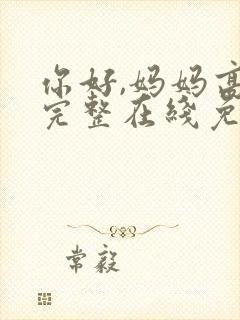 你好,妈妈高
完整在线免
常毅